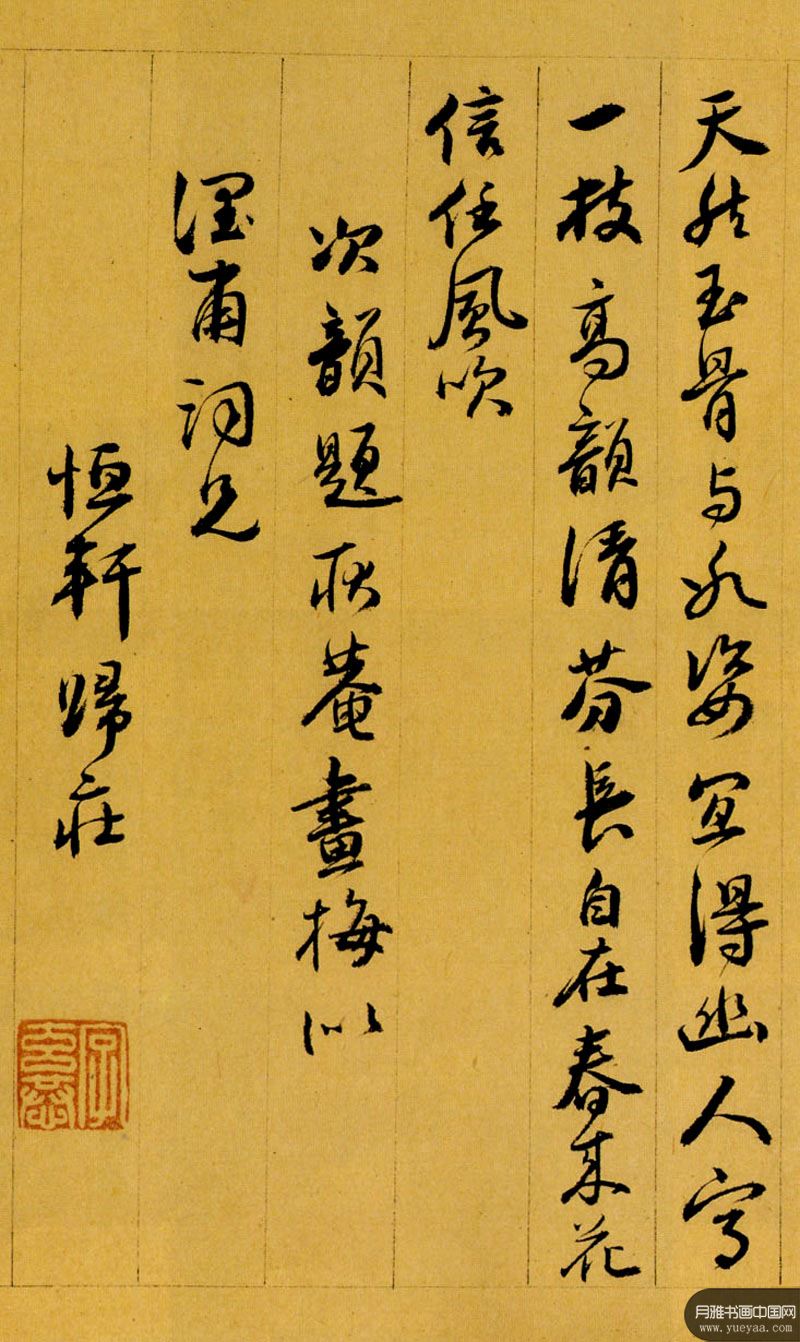 天然玉骨与冰姿宜得幽人写
一枝高韻清芬長自在春来花
信任風吹
次韻題秋菴畫梅似
甫詞兄
恒軒歸莊
月雅书画中国网
www.yueyaa.com